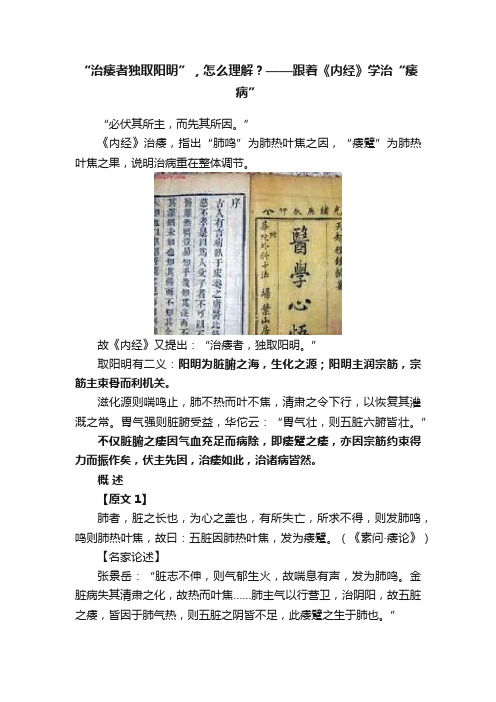 “治痿者独取阳明”，怎么理解？——跟着《内经》学治“痿
病”
“必伏其所主，而先其所因。”
《内经》治痿，指出“肺鸣”为肺热叶焦之因，“痿躄”为肺热
叶焦之果，说明治病重在整体调节。
序
醫學心悟
故《内经》又提出：“治痿者，独取阳明。”
取阳明有二义：阳明为脏腑之海，生化之源；阳明主润宗筋，宗
筋主束骨而利机关。
滋化源则喘鸣止，肺不热而叶不焦，清肃之令下行，以恢复其灌
溉之常。胃气强则脏腑受益，华佗云：“胃气壮，则五脏六腑皆壮。”
不仅脏腑之痿因气血充足而病除，即痿躄之痿，亦因宗筋约束得
力而振作矣，伏主先因，治痿如此，治诸病皆然。
概 述
【原文1】
肺者，脏之长也，为心之盖也，有所失亡，所求不得，则发肺鸣，
鸣则肺热叶焦，故曰：五脏因肺热叶焦，发为痿躄。（《素问·痿论》）
【名家论述】
张景岳：“脏志不伸，则气郁生火，故喘息有声，发为肺鸣。金
脏病失其清肃之化，故热而叶焦……肺主气以行营卫，治阴阳，故五脏
之痿，皆因于肺气热，则五脏之阴皆不足，此痿躄之生于肺也。”